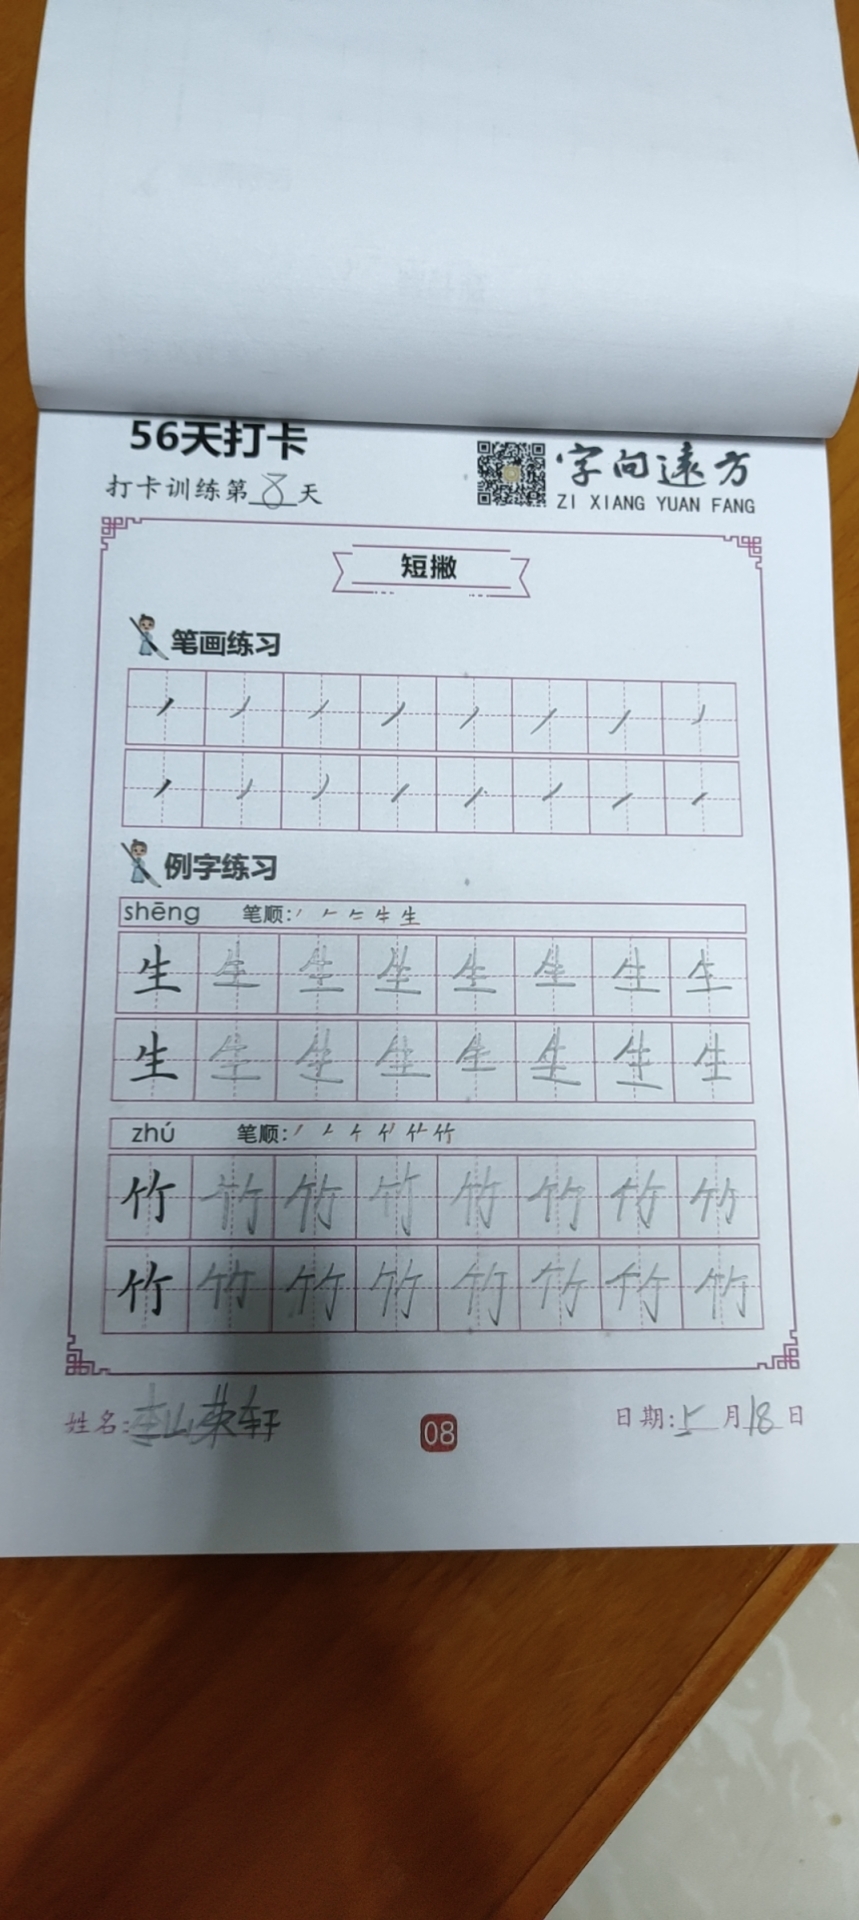 56天打卡
字向远方
打卡训练第8天
ZI XIANG YUAN FANG
短撇
笔画练习
例字练习
shēng 笔顺: 生
生 生 生 生 生 生 生 生
生 生 生 生 生 生 生 生
zhú 笔顺: 竹
竹 竹 竹 竹 竹 竹 竹 竹
竹 竹 竹 竹 竹 竹 竹 竹
姓名: 轩
08
日期:5月18日